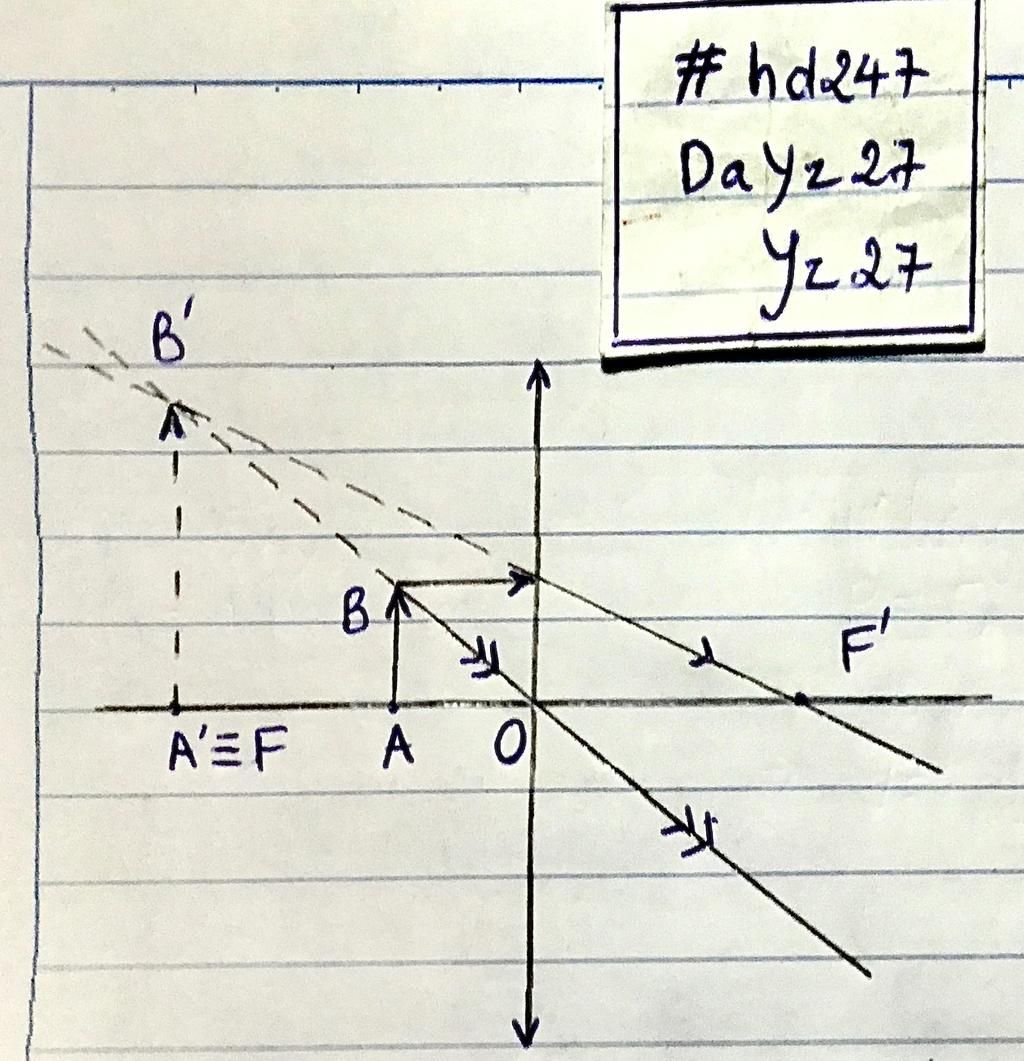 # hd247
Dayz27
Yz27
B'
B
F'
A'≡F
A
O